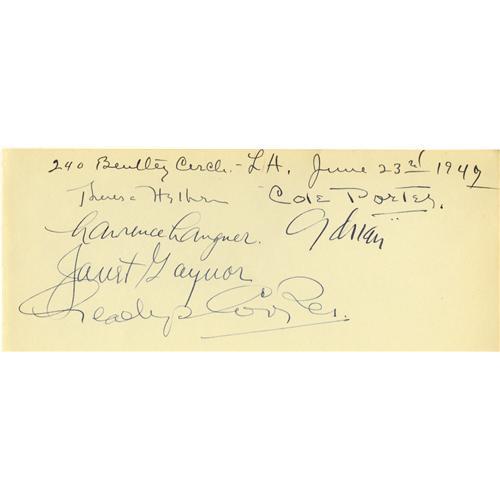 240 Bentley Circle - L A. June 23rd 1949
Theresa Helburn Cole Porter.
Lawrence Langner. Adrian
Janet Gaynor
Gladys Cooper.